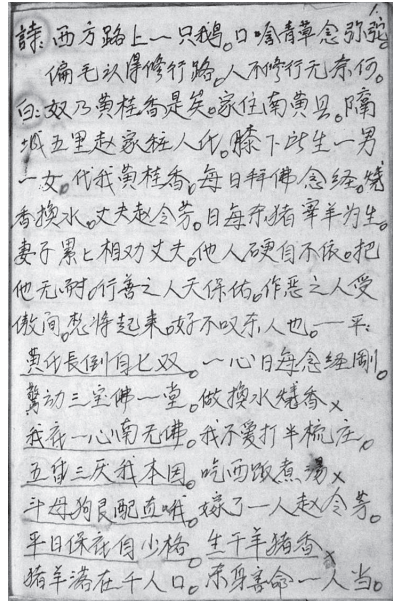 詩：西方路上一只鵝。口含青草念弥陀。
偏毛认得修行路。人不修行无奈何。
白：奴乃黄桂香是矣。家住南黄县。隔
城五里赵家庄人氏。膝下所生一男
一女。代我黄桂香。每日拜佛念经。燒
香換水。丈夫赵令芳。日每杀猪宰羊为生。
妻子累々相劝丈夫。他人硬自不依。把
他无耐。行善之人天保佑。作恶之人受
傲间。想将起来。好不叹杀人也。一平：
黄氏長倒自七双。一心日每念经剛。
驚动三宝佛一堂。做換水燒香×
我在一心南无佛。我不爱打半梳庄。
五三灰我本因。吃西饭煮湯×
斗母狗艮配直哦。嫁了一人赵令芳。
平日保在自少格。生干羊猪香×
猪羊满在千人口。杀身害命一人当。